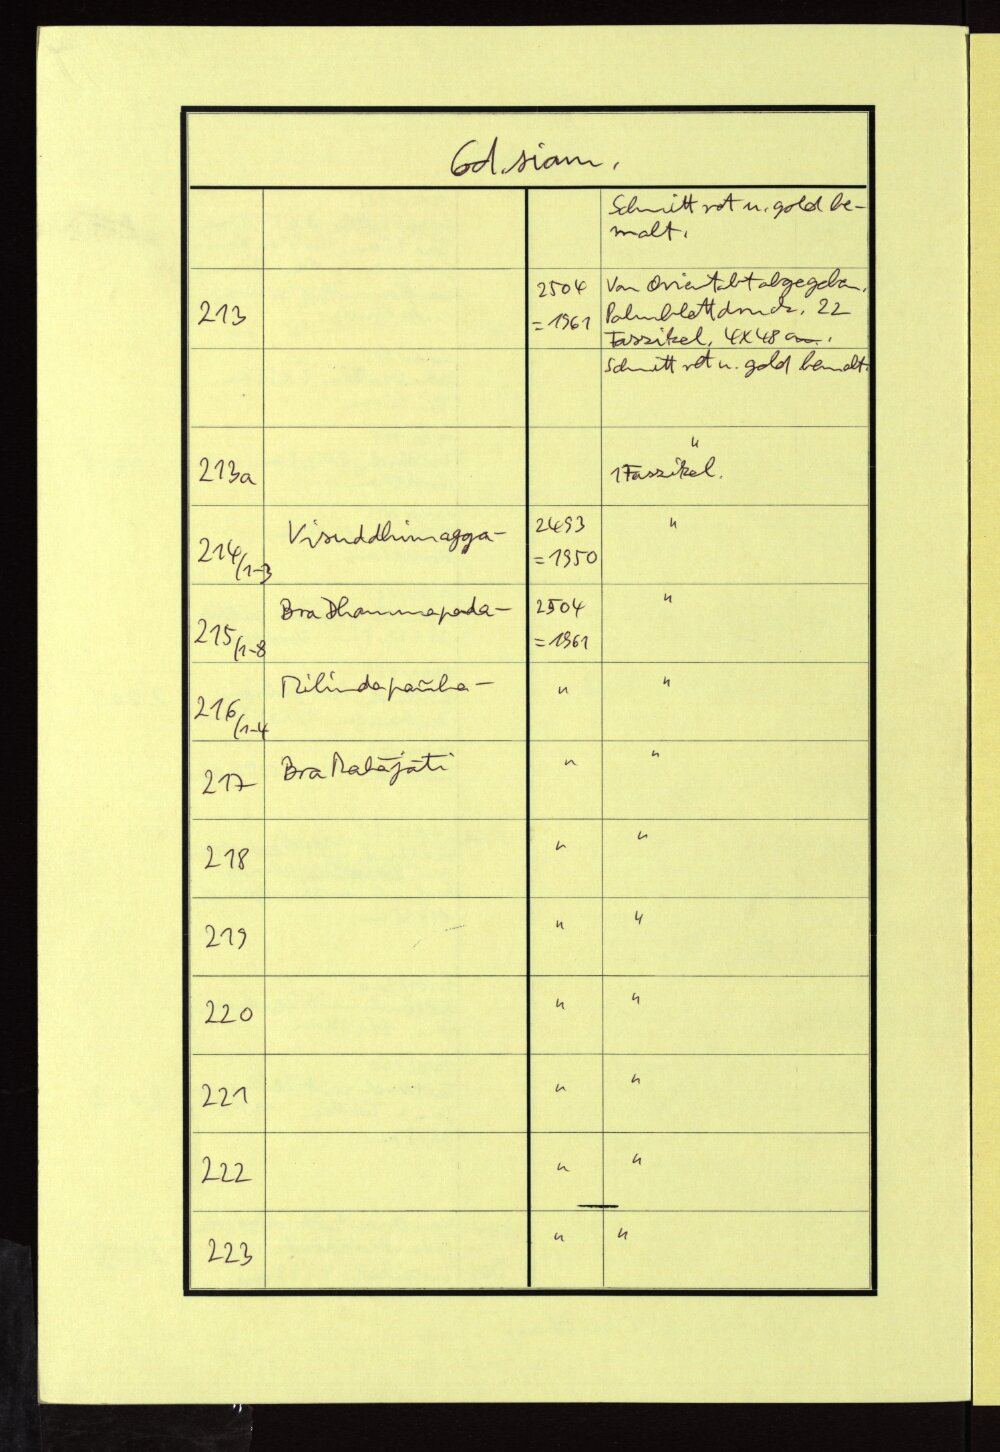 Cod. siam.
Schnitt rot u. gold be-
malt.
213 2504 Von Orientabt abgegeben.
= 1961 Palmblattdruck, 22
Faszikel, 4x48 cm.
Schnitt rot u. gold bemalt.
"
213a 1 Faszikel.
214/1-3 Visuddhimagga- 2493 "
= 1950
215/1-8 Bra Dhammapada- 2504 "
= 1961
216/1-4 Milindapañha- " "
217 Bra Mahājāti " "
218 " "
219 " "
220 " "
221 " "
222 " "
223 " "